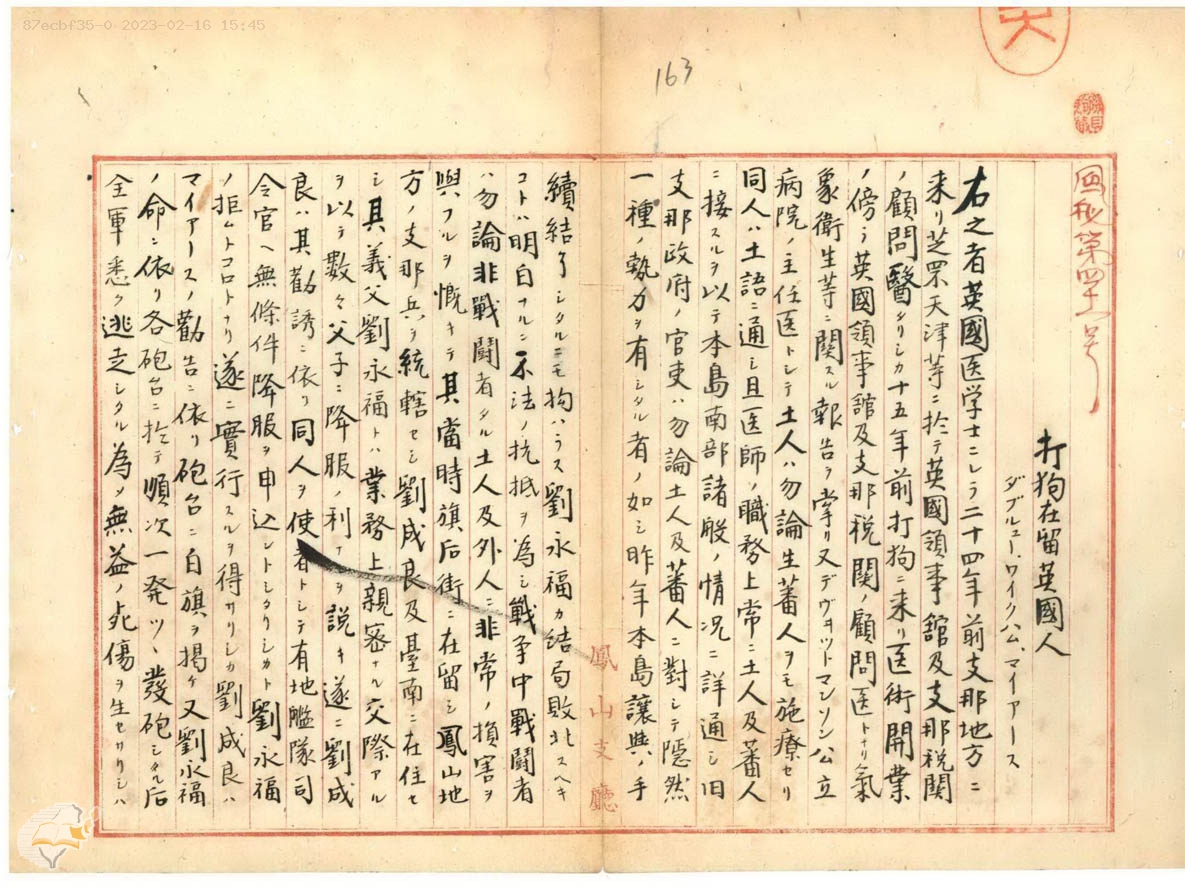 87ecbf35-0 2023-02-16 15:45
163
秘第四十一号
打狗在留英國人
ダブルユー、ワイクハム、マイアース
右之者英國医学士ニシテ二十四年前支那地方ニ
来リ芝罘天津等ニ於テ英國領事舘及支那税関
ノ顧問醫タリシカ十五年前打狗ニ来リ医術開業
ノ傍ラ英國領事舘及支那税関ノ顧問医トナリ氣
象衛生等ニ関スル報告ヲ掌リ又デヴヰツトマンソン公立
病院ノ主任医トシテ土人ハ勿論生蕃人ヲモ施療セリ
同人ハ土語ニ通シ且医師ノ職務上常ニ土人及蕃人
ニ接スルヲ以テ本島南部諸般ノ情况ニ詳通シ旧
支那政府ノ官吏ハ勿論土人及蕃人ニ對シテ隠然
一種ノ勢力ヲ有シタル者ノ如シ昨年本島讓與ノ手
續結了シタルニモ拘ハラス劉永福カ結局敗北スヘキ
コトハ明白ナルニ不法ノ抗抵ヲ為シ戰争中戰闘者
ハ勿論非戰闘者タル土人及外人ニ非常ノ損害ヲ
與フルヲ慨キテ其當時旗后街ニ在留シ鳳山地
方ノ支那兵ヲ統轄セシ劉成良及臺南ニ在住セ
シ其義父劉永福トハ業務上親密ナル交際アル
ヲ以テ数々父子ニ降服ノ利ナルヲ説キ遂ニ劉成
良ハ其勸誘ニ依リ同人ヲ使者トシテ有地艦隊司
令官ヘ無條件降服ヲ申込ントシタリシカト劉永福
ノ拒ムトコロトナリ遂ニ實行スルヲ得サリシカ劉成良ハ
マイアースノ勸告ニ依リ砲台ニ白旗ヲ揚ケ又劉永福
ノ命ニ依リ各砲台ニ於テ順次一発ツヽ發砲シタル后
全軍悉ク逃走シタル為メ無益ノ死傷ヲ生セサリシハ
鳳山支廳